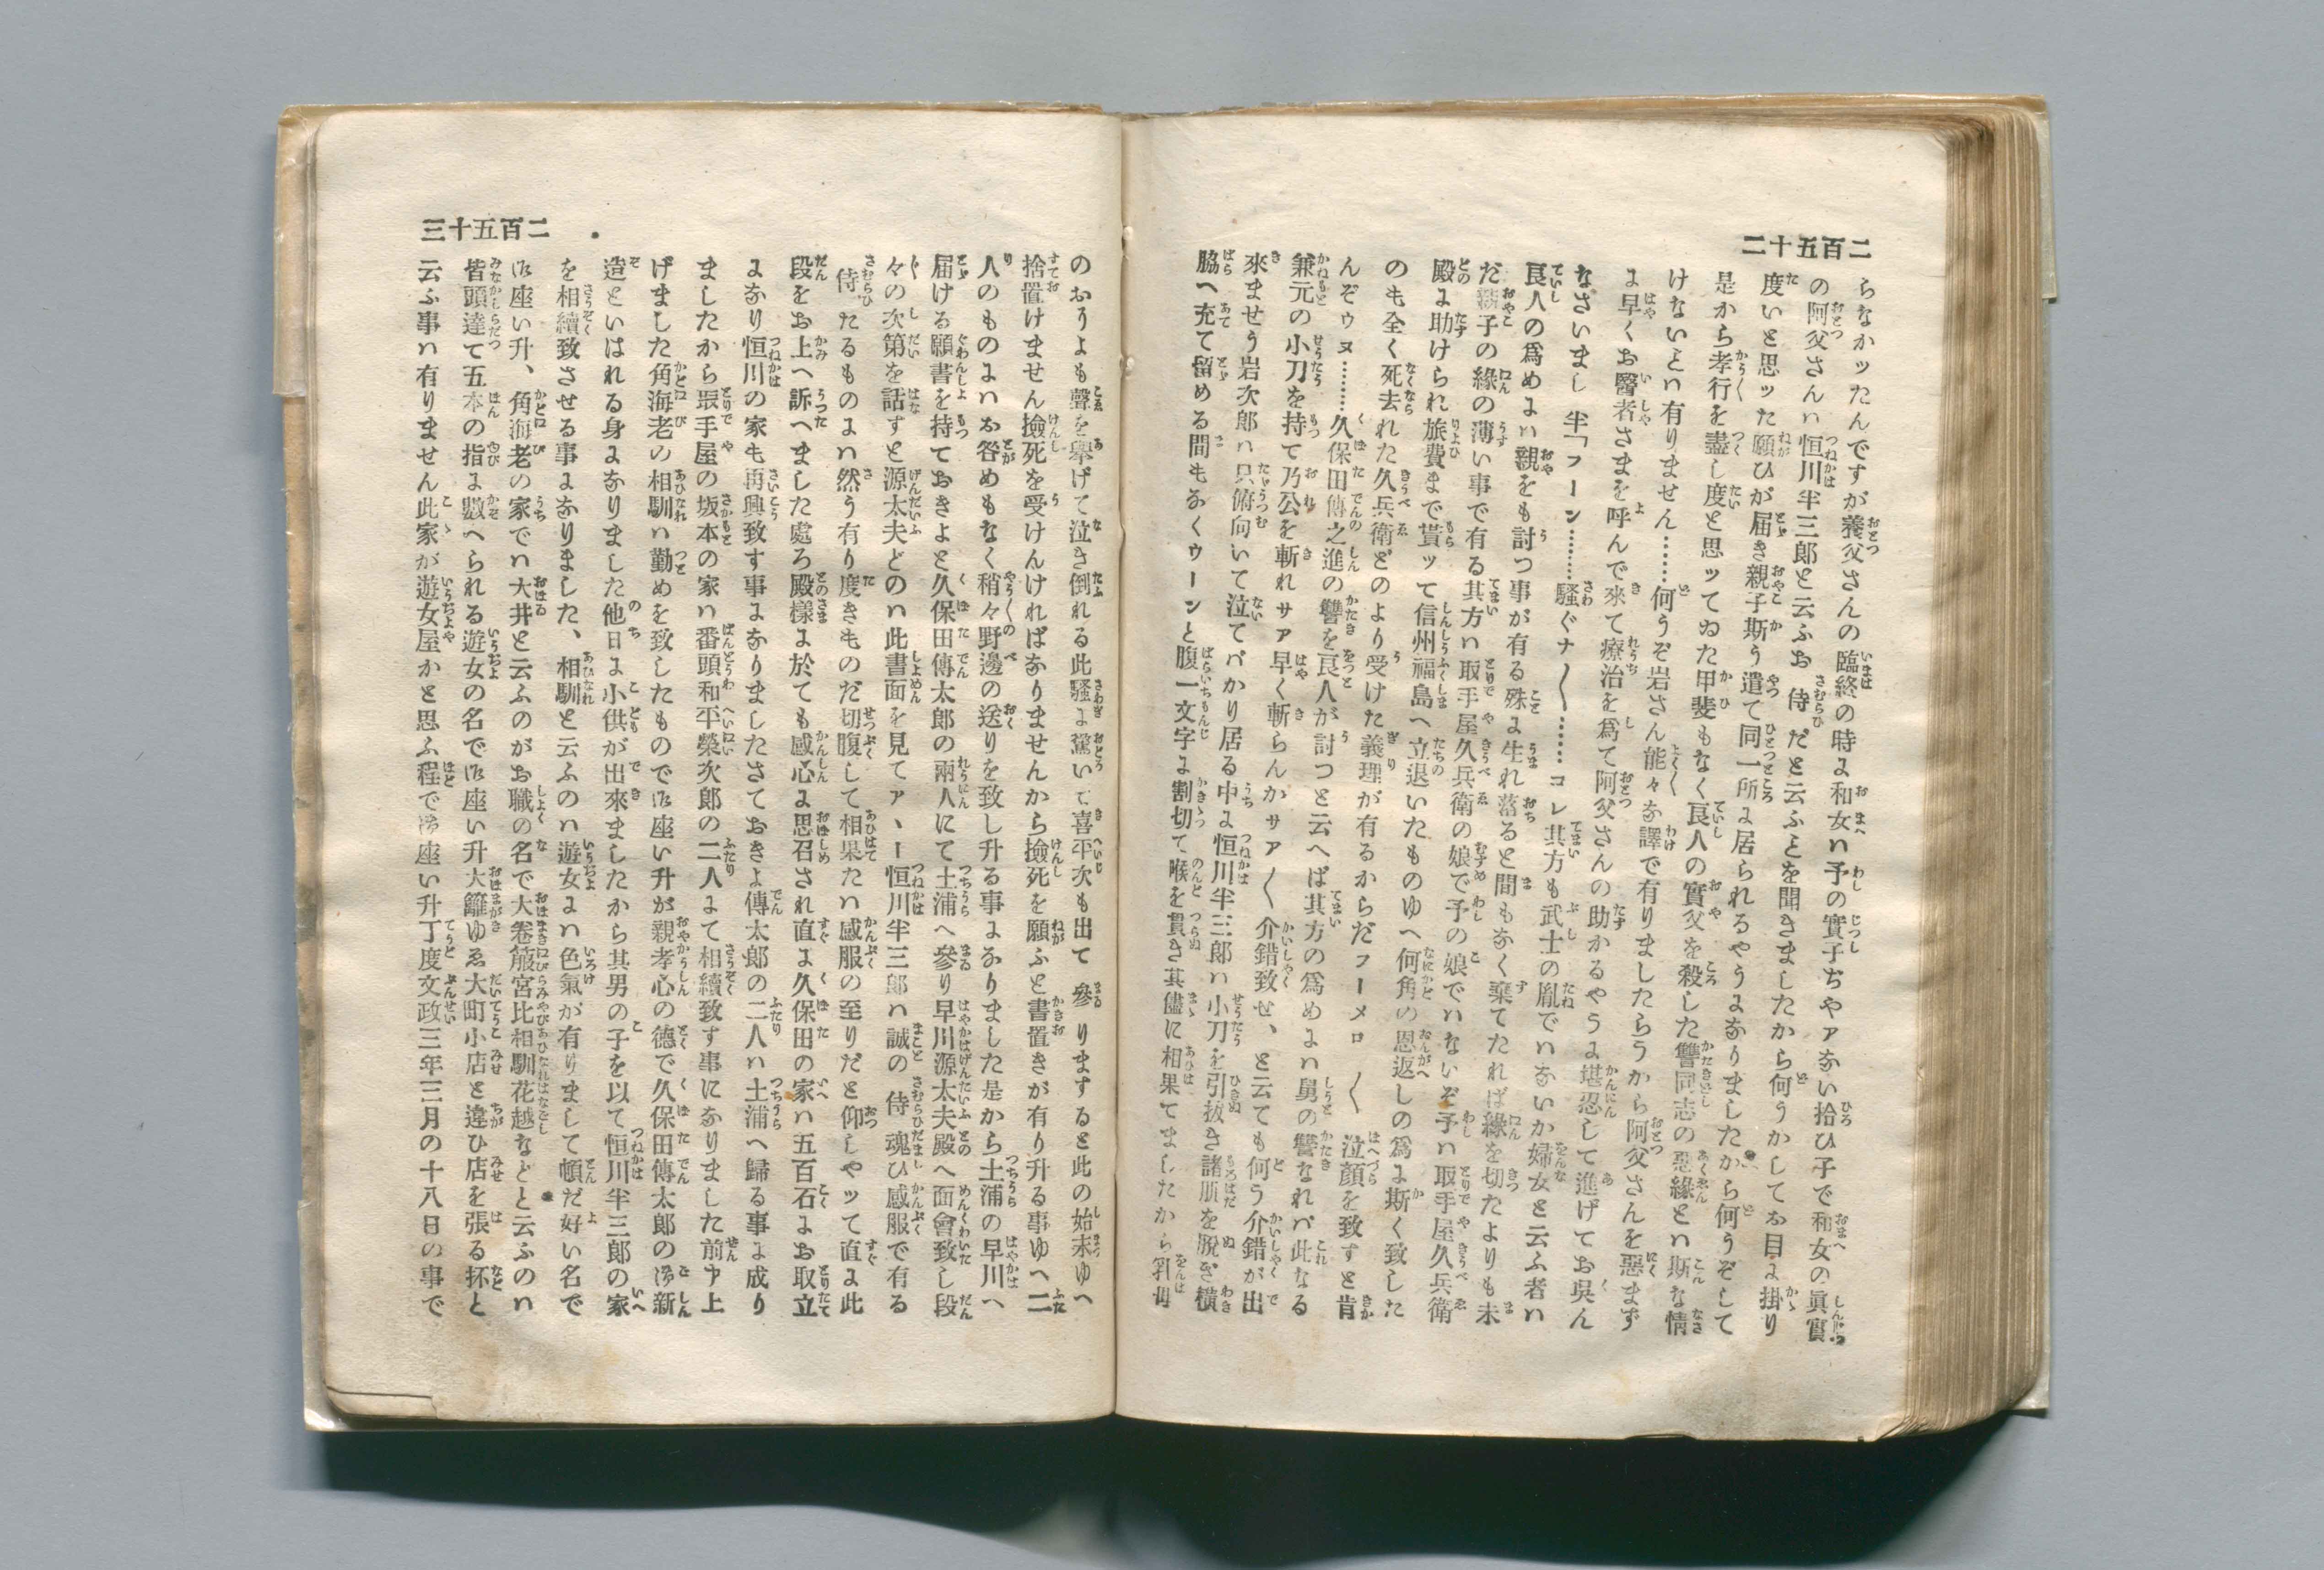 二百五十二
らなかッたんですが義父さんの臨終の時に和女ハ予の實子ぢやアない拾ひ子で和女の眞實
の阿父さんハ恒川半三郎と云ふお侍だと云ふとを聞きましたから何うかしてお目に掛り
度いと思ッた願ひが届き親子斯う遣て同一所に居られるやうになりましたから何うぞして
是から孝行を盡し度と思ッてゐた甲斐もなく良人の實父を殺した讐同志の惡緣とハ斯な情
けないとハ有りません………何うぞ岩さん能々な譯で有りましたらうから阿父さんを惡まず
に早くお醫者さまを呼んで來て療治を爲て阿父さんの助かるやうに堪忍して進げてお呉ん
なさいまし 半「フーン………騷ぐナ〳〵……コレ其方も武士の胤でハないか婦女と云ふ者ハ
良人の爲めにハ親をも討つ事が有る殊に生れ落ると間もなく棄てたれば緣を切たよりも未
だ親子の緣の薄い事で有る其方ハ取手屋久兵衛の娘で予の娘でハないぞ予ハ取手屋久兵衛
殿に助けられ旅費まで貰ッて信州福島へ立退いたものゆへ何角の恩返しの爲に斯く致した
のも全く死去れた久兵衛どのより受けた義理が有るからだフーメロ〳〵泣顔を致すと肯
んぞウヌ………久保田傳之進の讐を良人が討つと云へば其方の爲めにハ舅の讐なれバ此なる
兼元の小刀を持て乃公を斬れサア早く斬らんかサア〳〵介錯致せ、と云ても何う介錯が出
來ませう岩次郎ハ只俯向いて泣てバかり居る中に恒川半三郎ハ小刀を引拔き諸肌を脫ぎ橫
脇へ充て留める間もなくウーンと腹一文字に割切て喉を貫き其儘に相果てましたから乳母
二百五十三
のおりよも聲を擧げて泣き倒れる此騷に驚いて喜平次も出て參りますると此の始末ゆへ
捨置けません撿死を受けんければなりませんから撿死を願ふと書置きが有り升る事ゆへ二
人のものにハお咎めもなく稍々野邊の送りを致し升る事になりました是から土浦の早川へ
届ける願書を持ておきよと久保田傳太郎の兩人にて土浦へ參り早川源太夫殿へ面會致し段
々の次第を話すと源太夫どのハ此書面を見てアヽー恒川半三郎ハ誠の侍魂ひ感服で有る
侍たるものにハ然う有り度きものだ切腹して相果たハ感服の至りだと仰しやッて直に此
段をお上へ訴へました處ろ殿樣に於ても感心に思召され直に久保田の家ハ五百石にお取立
になり恒川の家も再興致す事になりましたさておきよ傳太郎の二人ハ土浦へ歸る事に成り
ましたから取手屋の坂本の家ハ番頭和平榮次郎の二人にて相續致す事になりました前申上
げました角海老の相馴ハ勤めを致したもので御座い升が親孝心の德で久保田傳太郎の御新
造といはれる身になりました他日に小供が出來ましたから其男の子を以て恒川半三郎の家
を相續致させる事になりました、相馴と云ふのハ遊女にハ色氣が有りまして頓だ好い名で
御座い升、角海老の家でハ大井と云ふのがお職の名で大卷簱宮比相馴花越などと云ふのハ
皆頭達て五本の指に數へられる遊女の名で御座い升大籬ゆゑ大町小店と違ひ店を張る抔と
云ふ事ハ有りません此家が遊女屋かと思ふ程で御座い升丁度文政三年三月の十八日の事で